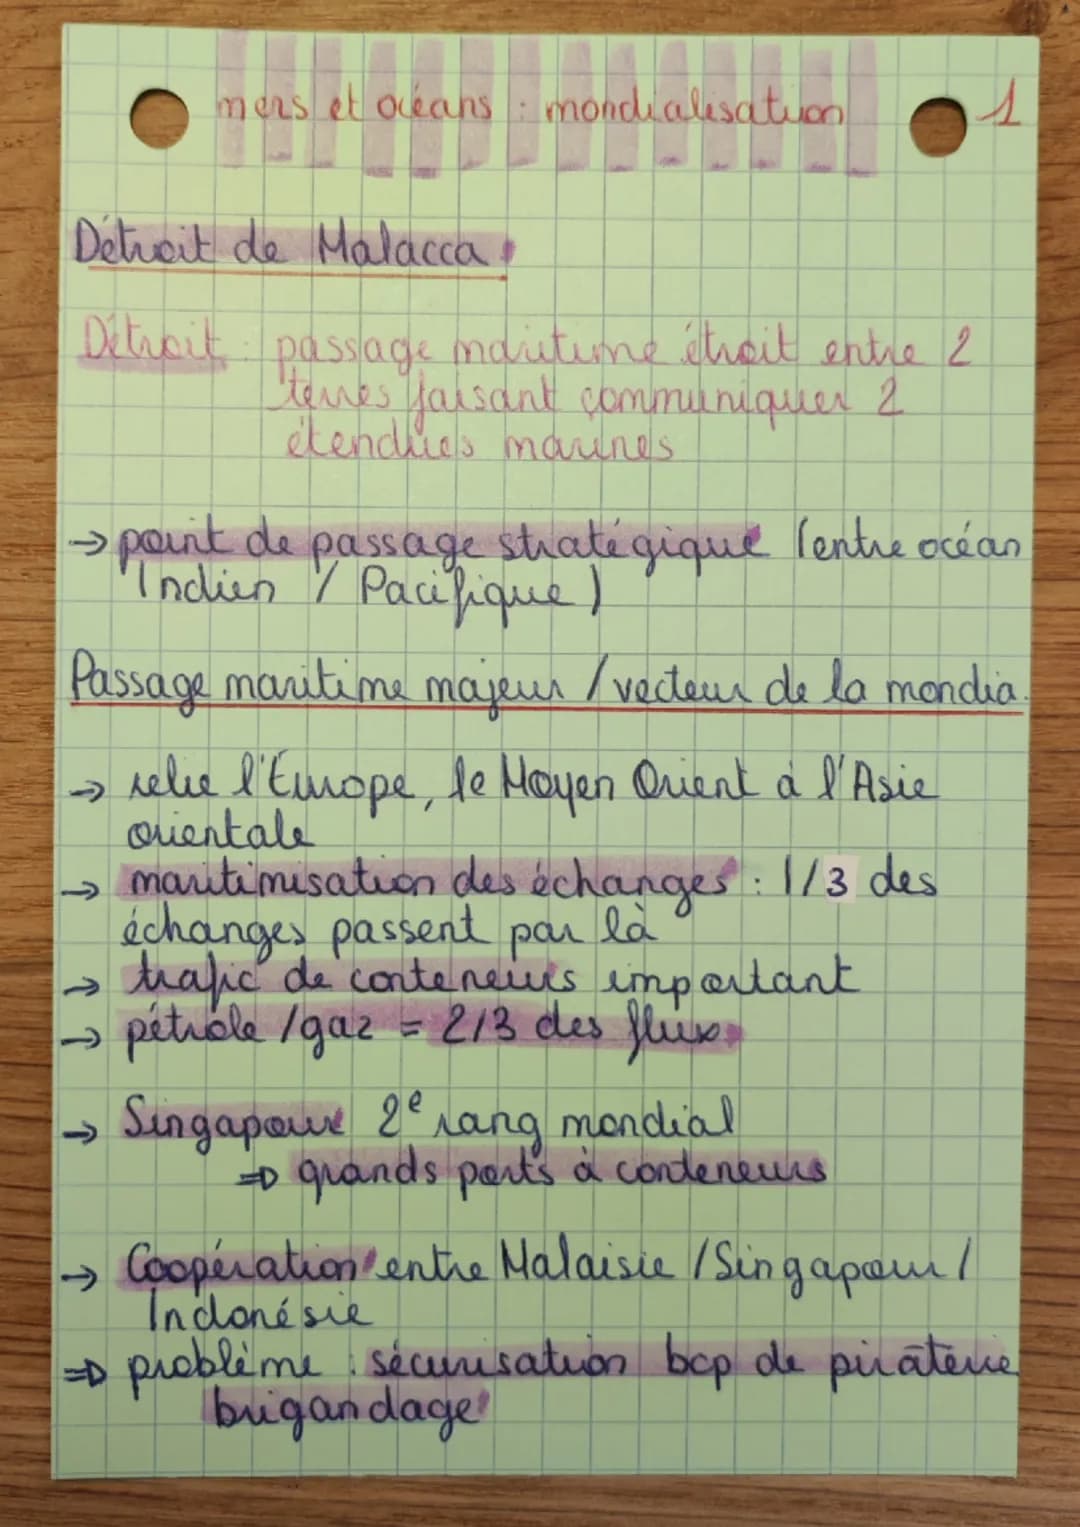 mers et océans : mondialisation 1
Détroit de Malacca
Détroit : passage maritime étroit entre 2
terres faisant communiquer 2
étendues marines
→ point de passage stratégique (entre océan
Indien / Pacifique)
Passage maritime majeur / vecteur de la mondia.
→ relie l'Europe, le Moyen Orient à l'Asie
orientale
→ maritimisation des échanges : 1/3 des
échanges passent par là
→ trafic de conteneurs important
→ pétrole / gaz = 2/3 des flux
→ Singapour 2e rang mondial
⇒ grands ports à conteneurs
→ Coopération entre Malaisie / Singapour /
Indonésie
⇒ problème : sécurisation bcp de piraterie
brigandage